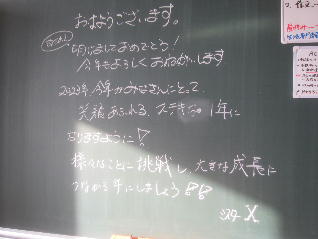 おはようございます。
明けましておめでとう!
今年もよろしくお願いします
2023年 今年がみなさんにとって
笑顔あふれる、ステキな1年に
なりますように!
様々なことに挑戦し、大きな成長に
つながる年にしましょう!!
ミスターX